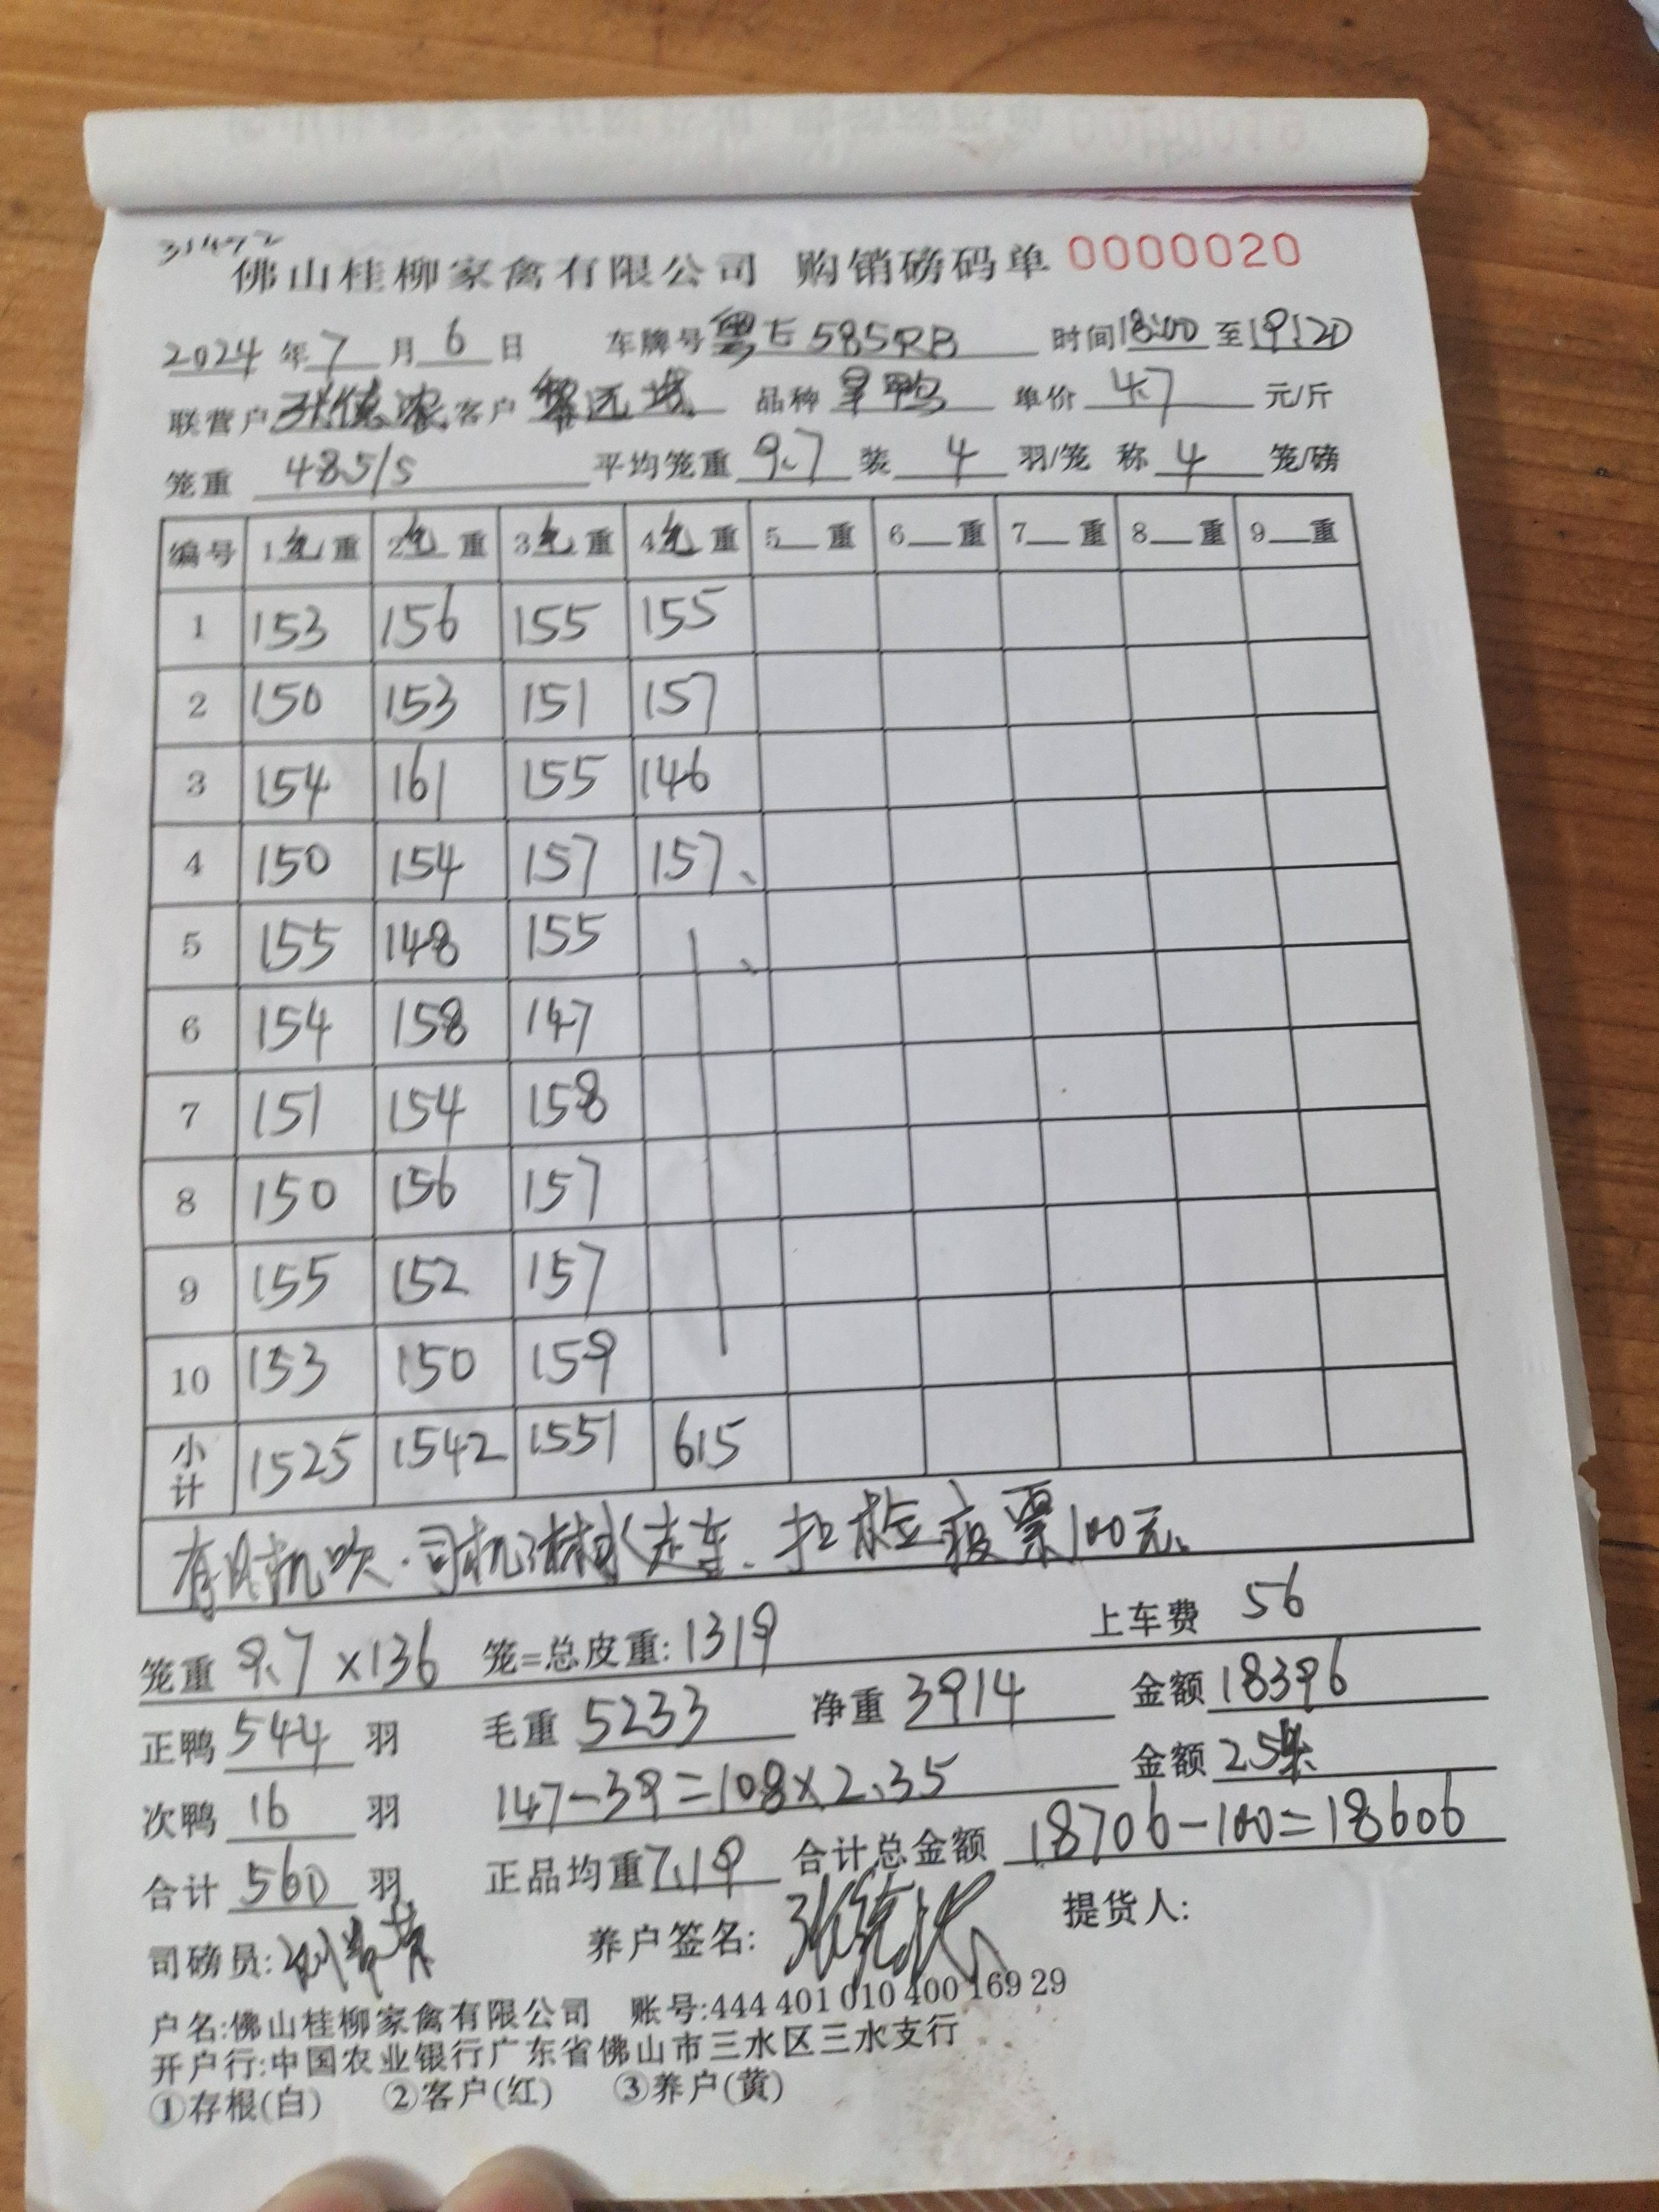 31472
佛山桂柳家禽有限公司 购销磅码单 0000020
2024 年 7 月 6 日 车牌号 粤E585RB 时间 18:00 至 19:20
联营户 张德浓 客户 黎远城 品种 旱鸭 单价 4.7 元/斤
笼重 485/5 平均笼重 9.7 装 4 羽/笼 称 4 笼/磅
编号 1毛重 2毛重 3毛重 4毛重 5__重 6__重 7__重 8__重 9__重
1 153 156 155 155
2 150 153 151 157
3 154 161 155 146
4 150 154 157 157、
5 155 148 155
6 154 158 147
7 151 154 158
8 150 156 157
9 155 152 157
10 153 150 159
小计 1525 1542 1551 615
有风机吹.司机淋水走车.扣检疫票100元.
笼重 9.7 x136 笼=总皮重: 1319 上车费 56
正鸭 544 羽 毛重 5233 净重 3914 金额 18396
次鸭 16 羽 147-39=108x2.35 金额 254
合计 560 羽 正品均重 7.19 合计总金额 18706-100=18606
司磅员: 养户签名: 提货人:
户名:佛山桂柳家禽有限公司 账号:444 401 010 400 169 29
开户行:中国农业银行广东省佛山市三水区三水支行
①存根(白) ②客户(红) ③养户(黄)